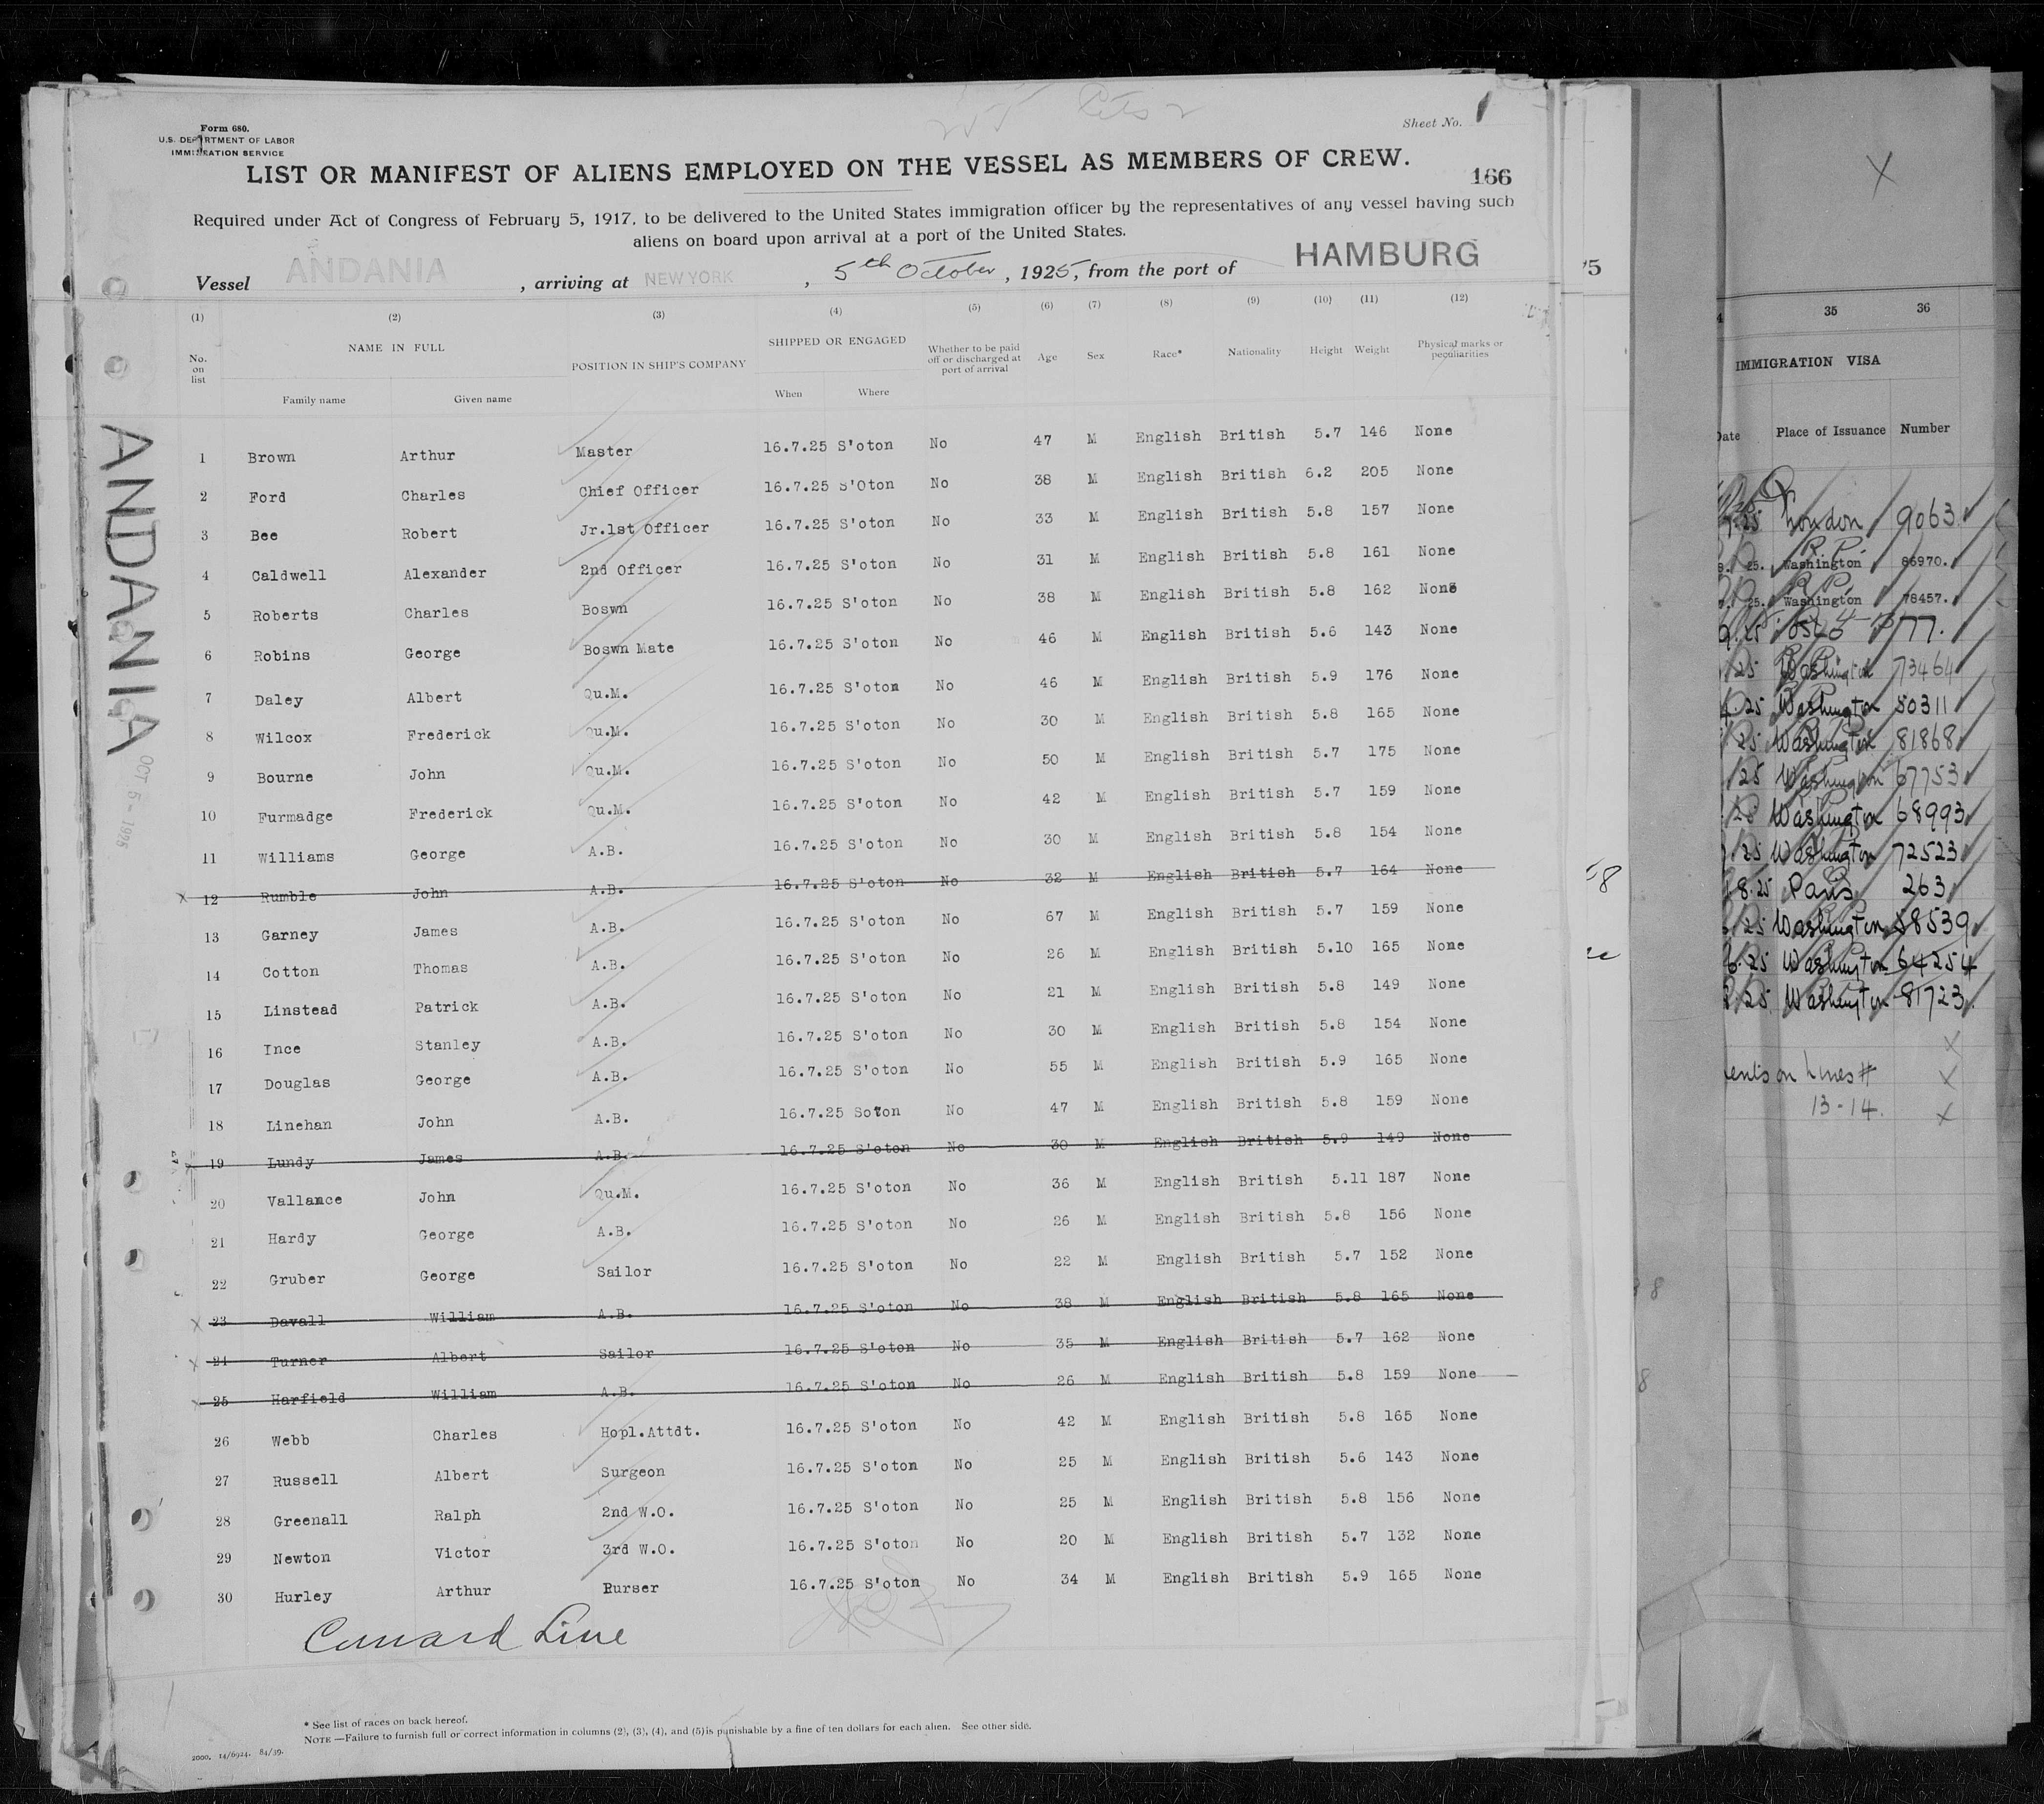 Form 680.
U.S. DEPARTMENT OF LABOR
IMMIGRATION SERVICE
Sheet No. 1
LIST OR MANIFEST OF ALIENS EMPLOYED ON THE VESSEL AS MEMBERS OF CREW.
166
Required under Act of Congress of February 5, 1917, to be delivered to the United States immigration officer by the representatives of any vessel having such
aliens on board upon arrival at a port of the United States.
Vessel ANDANIA , arriving at NEW YORK , 5th October , 1925, from the port of HAMBURG
(1) (2) (3) (4) (5) (6) (7) (8) (9) (10) (11) (12)
No. on list NAME IN FULL POSITION IN SHIP'S COMPANY SHIPPED OR ENGAGED Whether to be paid off or discharged at port of arrival Age Sex Race* Nationality Height Weight Physical marks or peculiarities
Family name Given name When Where
1 Brown Arthur Master 16.7.25 S'oton No 47 M English British 5.7 146 None
2 Ford Charles Chief Officer 16.7.25 S'Oton No 38 M English British 6.2 205 None
3 Bee Robert Jr.1st Officer 16.7.25 S'oton No 33 M English British 5.8 157 None
4 Caldwell Alexander 2nd Officer 16.7.25 S'oton No 31 M English British 5.8 161 None
5 Roberts Charles Boswn 16.7.25 S'oton No 38 M English British 5.8 162 None
6 Robins George Boswn Mate 16.7.25 S'oton No 46 M English British 5.6 143 None
7 Daley Albert Qu.M. 16.7.25 S'oton No 46 M English British 5.9 176 None
8 Wilcox Frederick Qu.M. 16.7.25 S'oton No 30 M English British 5.8 165 None
9 Bourne John Qu.M. 16.7.25 S'oton No 50 M English British 5.7 175 None
10 Furmadge Frederick Qu.M. 16.7.25 S'oton No 42 M English British 5.7 159 None
11 Williams George A.B. 16.7.25 S'oton No 30 M English British 5.8 154 None
12 Rumble John A.B. 16.7.25 S'oton No 32 M English British 5.7 164 None
13 Garney James A.B. 16.7.25 S'oton No 67 M English British 5.7 159 None
14 Cotton Thomas A.B. 16.7.25 S'oton No 26 M English British 5.10 165 None
15 Linstead Patrick A.B. 16.7.25 S'oton No 21 M English British 5.8 149 None
16 Ince Stanley A.B. 16.7.25 S'oton No 30 M English British 5.8 154 None
17 Douglas George A.B. 16.7.25 S'oton No 55 M English British 5.9 165 None
18 Linehan John A.B. 16.7.25 Soton No 47 M English British 5.8 159 None
19 Lundy James A.B. 16.7.25 S'oton No 30 M English British 5.9 149 None
20 Vallance John Qu.M. 16.7.25 S'oton No 36 M English British 5.11 187 None
21 Hardy George A.B. 16.7.25 S'oton No 26 M English British 5.8 156 None
22 Gruber George Sailor 16.7.25 S'oton No 22 M English British 5.7 152 None
23 Davall William A.B. 16.7.25 S'oton No 38 M English British 5.8 165 None
24 Turner Albert Sailor 16.7.25 S'oton No 35 M English British 5.7 162 None
25 Harfield William A.B. 16.7.25 S'oton No 26 M English British 5.8 159 None
26 Webb Charles Hopl.Attdt. 16.7.25 S'oton No 42 M English British 5.8 165 None
27 Russell Albert Surgeon 16.7.25 S'oton No 25 M English British 5.6 143 None
28 Greenall Ralph 2nd W.O. 16.7.25 S'oton No 25 M English British 5.8 156 None
29 Newton Victor 3rd W.O. 16.7.25 S'oton No 20 M English British 5.7 132 None
30 Hurley Arthur Purser 16.7.25 S'oton No 34 M English British 5.9 165 None
Cunard Line
* See list of races on back hereof.
NOTE —Failure to furnish full or correct information in columns (2), (3), (4), and (5) is punishable by a fine of ten dollars for each alien. See other side.
2000. 14/6924. 84/39.
ANDANIA
OCT 5- 1925
35 36
IMMIGRATION VISA
Date Place of Issuance Number
25 London 9063
25. Washington 86970.
25. Washington 78457.
9.25 Oslo 77.
25 Washington 73464
25 Washington 80311
25 Washington 81868
25 Washington 67753
25 Washington 68993
25 Washington 72523
8.25 Paris 263
25 Washington 58539
6.25 Washington 64254
25 Washington 81723.
on Lines #
13-14.